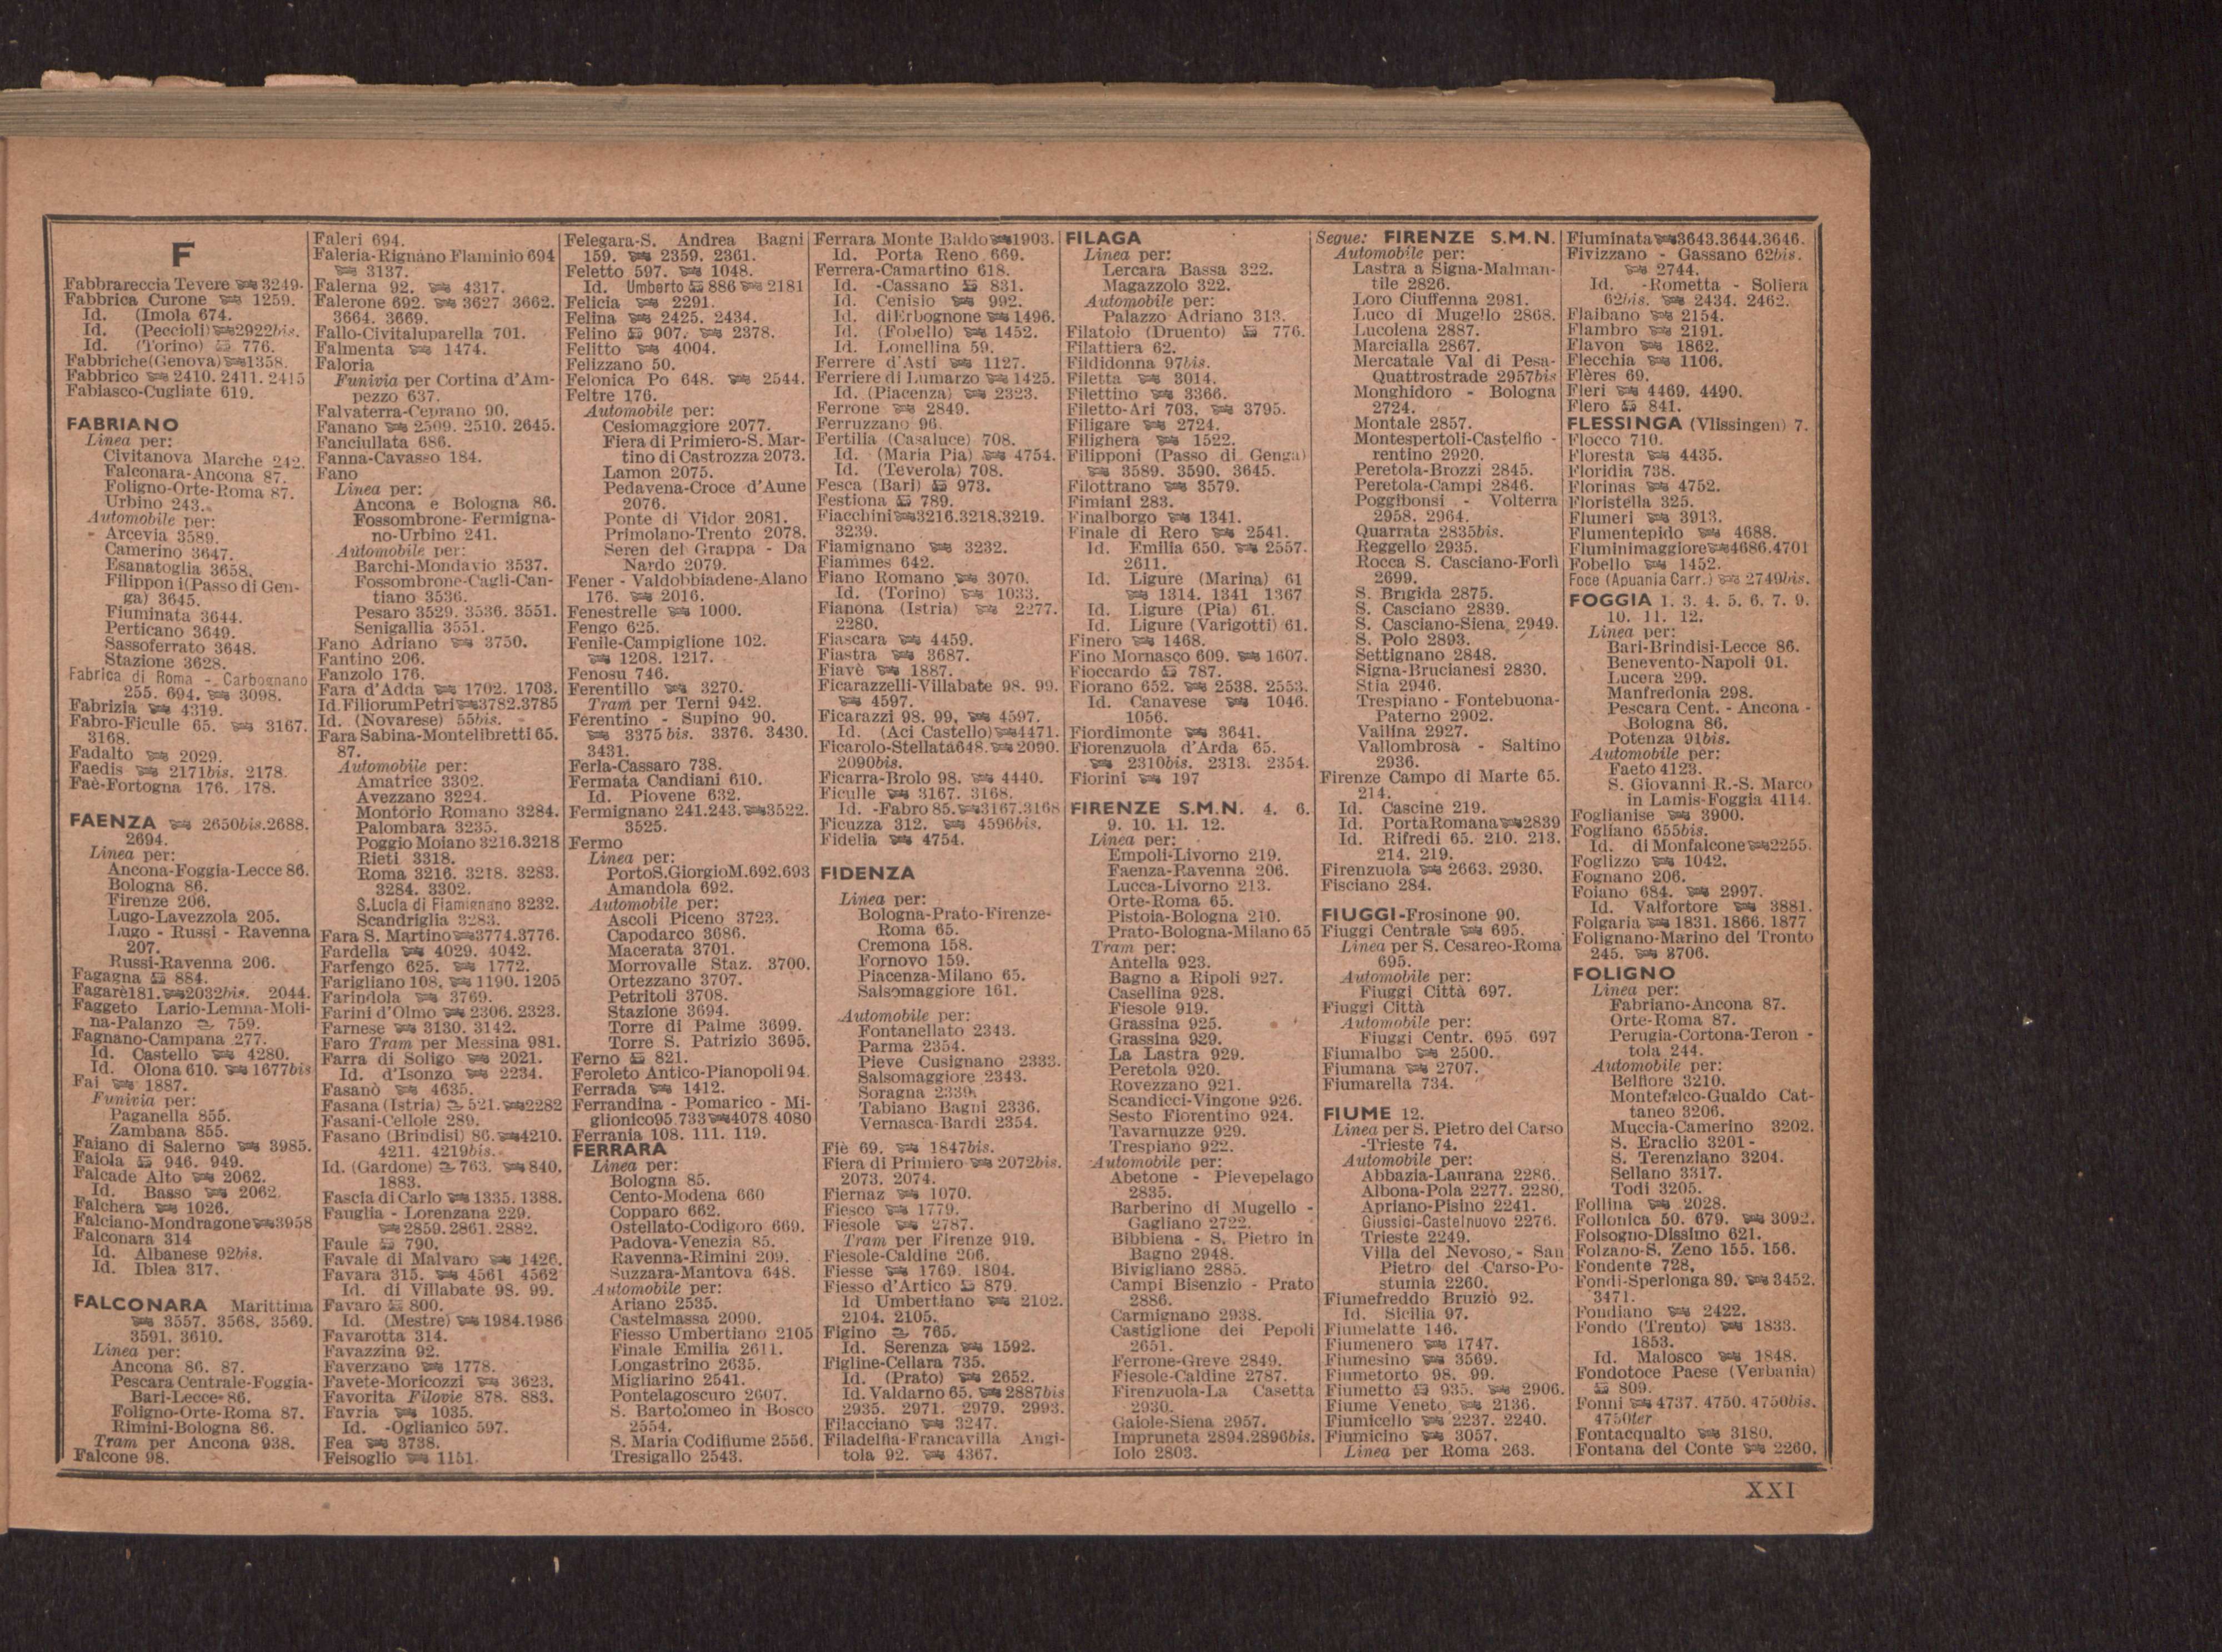 F
Fabbrareccia Tevere 3249.
Fabbrica Curone 1259.
Id. (Imola 674.
Id. (Peccioli) 2922bis.
Id. (Torino) 776.
Fabbriche (Genova) 1358.
Fabbrico 2410. 2411. 2415
Fabiasco-Cugliate 619.
FABRIANO
Linea per:
Civitanova Marche 242.
Falconara-Ancona 87.
Foligno-Orte-Roma 87.
Urbino 243.
Automobile per:
Arcevia 3589.
Camerino 3647.
Esanatoglia 3658.
Filipponi (Passo di Gen-
ga) 3645.
Fiuminata 3644.
Perticano 3649.
Sassoferrato 3648.
Stazione 3628.
Fabrica di Roma - Carbognano
255. 694. 3098.
Fabrizia 4319.
Fabro-Ficulle 65. 3167.
3168.
Fadalto 2029.
Faedis 2171bis. 2178.
Faè-Fortogna 176. 178.
FAENZA 2650bis. 2688.
2694.
Linea per:
Ancona-Foggia-Lecce 86.
Bologna 86.
Firenze 206.
Lugo-Lavezzola 205.
Lugo - Russi - Ravenna
207.
Russi-Ravenna 206.
Fagagna 884.
Fagarè 181. 2032bis. 2044.
Faggeto Lario-Lemna-Moli-
na-Palanzo 759.
Fagnano-Campana 277.
Id. Castello 4280.
Id. Olona 610. 1677bis
Fai 1887.
Funivia per:
Paganella 855.
Zambana 855.
Faiano di Salerno 3985.
Faiola 946. 949.
Falcade Alto 2062.
Id. Basso 2062.
Falchera 1026.
Falciano-Mondragone 3958
Falconara 314
Id. Albanese 92bis.
Id. Iblea 317.
FALCONARA Marittima
3557. 3568. 3569.
3591. 3610.
Linea per:
Ancona 86. 87.
Pescara Centrale-Foggia-
Bari-Lecce 86.
Foligno-Orte-Roma 87.
Rimini-Bologna 86.
Tram per Ancona 938.
Falcone 98.
Faleri 694.
Faleria-Rignano Flaminio 694
3137.
Falerna 92. 4317.
Falerone 692. 3627 3662.
3664. 3669.
Fallo-Civitaluparella 701.
Falmenta 1474.
Faloria
Funivia per Cortina d'Am-
pezzo 637.
Falvaterra-Ceprano 90.
Fanano 2509. 2510. 2645.
Fanciullata 686.
Fanna-Cavasso 184.
Fano
Linea per:
Ancona e Bologna 86.
Fossombrone-Fermigna-
no-Urbino 241.
Automobile per:
Barchi-Mondavio 3537.
Fossombrone-Cagli-Can-
tiano 3536.
Pesaro 3529. 3536. 3551.
Senigallia 3551.
Fano Adriano 3750.
Fantino 206.
Fanzolo 176.
Fara d'Adda 1702. 1703.
Id. Filiorum Petri 3782.3785
Id. (Novarese) 55bis.
Fara Sabina-Montelibretti 65.
87.
Automobile per:
Amatrice 3302.
Avezzano 3224.
Montorio Romano 3284.
Palombara 3235.
Poggio Moiano 3216.3218
Rieti 3318.
Roma 3216. 3218. 3283.
3284. 3302.
S.Lucia di Fiamignano 3232.
Scandriglia 3283.
Fara S. Martino 3774.3776.
Fardella 4029. 4042.
Farfengo 625. 1772.
Farigliano 108. 1190. 1205
Farindola 3769.
Farini d'Olmo 2306. 2323.
Farnese 3130. 3142.
Faro Tram per Messina 981.
Farra di Soligo 2021.
Id. d'Isonzo 2234.
Fasanò 4635.
Fasana (Istria) 521. 2282
Fasani-Cellole 289.
Fasano (Brindisi) 86. 4210.
4211. 4219bis.
Id. (Gardone) 763. 840.
1883.
Fascia di Carlo 1335. 1388.
Fauglia - Lorenzana 229.
2859.2861.2882.
Faule 790.
Favale di Malvaro 1426.
Favara 315. 4561 4562
Id. di Villabate 98. 99.
Favaro 800.
Id. (Mestre) 1984.1986
Favarotta 314.
Favazzina 92.
Faverzano 1778.
Favete-Moricozzi 3623.
Favorita Filovie 878. 883.
Favria 1035.
Id. -Oglianico 597.
Fea 3738.
Feisoglio 1151.
Felegara-S. Andrea Bagni
159. 2359. 2361.
Feletto 597. 1048.
Id. Umberto 886 2181
Felicia 2291.
Felina 2425. 2434.
Felino 907. 2378.
Felitto 4004.
Felizzano 50.
Felonica Po 648. 2544.
Feltre 176.
Automobile per:
Cesiomaggiore 2077.
Fiera di Primiero-S. Mar-
tino di Castrozza 2073.
Lamon 2075.
Pedavena-Croce d'Aune
2076.
Ponte di Vidor 2081.
Primolano-Trento 2078.
Seren del Grappa - Da
Nardo 2079.
Fener - Valdobbiadene-Alano
176. 2016.
Fenestrelle 1000.
Fengo 625.
Fenile-Campiglione 102.
1208. 1217.
Fenosu 746.
Ferentillo 3270.
Tram per Terni 942.
Ferentino - Supino 90.
3375bis. 3376. 3430.
3431.
Ferla-Cassaro 738.
Fermata Candiani 610.
Id. Piovene 632.
Fermignano 241.243. 3522.
3525.
Fermo
Linea per:
PortoS.GiorgioM.692.693
Amandola 692.
Automobile per:
Ascoli Piceno 3723.
Capodarco 3686.
Macerata 3701.
Morrovalle Staz. 3700.
Ortezzano 3707.
Petritoli 3708.
Stazione 3694.
Torre di Palme 3699.
Torre S. Patrizio 3695.
Ferno 821.
Feroleto Antico-Pianopoli 94.
Ferrada 1412.
Ferrandina - Pomarico - Mi-
glionico 95 733 4078 4080
Ferrania 108. 111. 119.
FERRARA
Linea per:
Bologna 85.
Cento-Modena 660
Copparo 662.
Ostellato-Codigoro 669.
Padova-Venezia 85.
Ravenna-Rimini 209.
Suzzara-Mantova 648.
Automobile per:
Ariano 2535.
Castelmassa 2090.
Fiesso Umbertiano 2105
Finale Emilia 2611.
Longastrino 2635.
Migliarino 2541.
Pontelagoscuro 2607.
S. Bartolomeo in Bosco
2554.
S. Maria Codifiume 2556.
Tresigallo 2543.
Ferrara Monte Baldo 1903.
Id. Porta Reno 669.
Ferrera-Camartino 618.
Id. -Cassano 831.
Id. Cenisio 992.
Id. diErbognone 1496.
Id. (Fobello) 1452.
Id. Lomellina 59.
Ferrere d'Asti 1127.
Ferriere di Lumarzo 1425.
Id. (Piacenza) 2323.
Ferrone 2849.
Ferruzzano 96.
Fertilia (Casaluce) 708.
Id. (Maria Pia) 4754.
Id. (Teverola) 708.
Fesca (Bari) 973.
Festiona 789.
Fiacchini 3216.3218.3219.
3239.
Fiamignano 3232.
Fiammes 642.
Fiano Romano 3070.
Id. (Torino) 1033.
Fianona (Istria) 2277.
2280.
Fiascara 4459.
Fiastra 3687.
Fiavè 1887.
Ficarazzelli-Villabate 98. 99.
4597.
Ficarazzi 98. 99. 4597.
Id. (Aci Castello) 4471.
Ficarolo-Stellata 648. 2090.
2090bis.
Ficarra-Brolo 98. 4440.
Ficulle 3167. 3168.
Id. -Fabro 85. 3167.3168
Ficuzza 312. 4596bis.
Fidelia 4754.
FIDENZA
Linea per:
Bologna-Prato-Firenze-
Roma 65.
Cremona 158.
Fornovo 159.
Piacenza-Milano 65.
Salsomaggiore 161.
Automobile per:
Fontanellato 2343.
Parma 2354.
Pieve Cusignano 2333.
Salsomaggiore 2343.
Soragna 2339.
Tabiano Bagni 2336.
Vernasca-Bardi 2354.
Fiè 69. 1847bis.
Fiera di Primiero 2072bis.
2073. 2074.
Fiernaz 1070.
Fiesco 1779.
Fiesole 2787.
Tram per Firenze 919.
Fiesole-Caldine 206.
Fiesse 1769. 1804.
Fiesso d'Artico 879.
Id Umbertiano 2102.
2104. 2105.
Figino 765.
Id. Serenza 1592.
Figline-Cellara 735.
Id. (Prato) 2652.
Id. Valdarno 65. 2887bis
2935. 2971. 2979. 2993.
Filacciano 3247.
Filadelfia-Francavilla Angi-
tola 92. 4367.
FILAGA
Linea per:
Lercara Bassa 322.
Magazzolo 322.
Automobile per:
Palazzo Adriano 313.
Filatoio (Druento) 776.
Filattiera 62.
Fildidonna 97bis.
Filetta 3014.
Filettino 3366.
Filetto-Ari 703. 3795.
Filigare 2724.
Filighera 1522.
Filipponi (Passo di Genga)
3589. 3590. 3645.
Filottrano 3579.
Fimiani 283.
Finalborgo 1341.
Finale di Rero 2541.
Id. Emilia 650. 2557.
2611.
Id. Ligure (Marina) 61
1314. 1341 1367
Id. Ligure (Pia) 61.
Id. Ligure (Varigotti) 61.
Finero 1468.
Fino Mornasco 609. 1607.
Fioccardo 787.
Fiorano 652. 2538. 2553.
Id. Canavese 1046.
1056.
Fiordimonte 3641.
Fiorenzuola d'Arda 65.
2310bis. 2313. 2354.
Fiorini 197
FIRENZE S.M.N. 4. 6.
9. 10. 11. 12.
Linea per:
Empoli-Livorno 219.
Faenza-Ravenna 206.
Lucca-Livorno 213.
Orte-Roma 65.
Pistoia-Bologna 210.
Prato-Bologna-Milano 65
Tram per:
Antella 923.
Bagno a Ripoli 927.
Casellina 928.
Fiesole 919.
Grassina 925.
Grassina 929.
La Lastra 929.
Peretola 920.
Rovezzano 921.
Scandicci-Vingone 926.
Sesto Fiorentino 924.
Tavarnuzze 929.
Trespiano 922.
Automobile per:
Abetone - Pievepelago
2835.
Barberino di Mugello -
Gagliano 2722.
Bibbiena - S. Pietro in
Bagno 2948.
Bivigliano 2885.
Campi Bisenzio - Prato
2886.
Carmignano 2938.
Castiglione dei Pepoli
2651.
Ferrone-Greve 2849.
Fiesole-Caldine 2787.
Firenzuola-La Casetta
2930.
Gaiole-Siena 2957.
Impruneta 2894.2896bis.
Iolo 2803.
Segue: FIRENZE S.M.N.
Automobile per:
Lastra a Signa-Malman-
tile 2826.
Loro Ciuffenna 2981.
Luco di Mugello 2868.
Lucolena 2887.
Marcialla 2867.
Mercatale Val di Pesa-
Quattrostrade 2957bis
Monghidoro - Bologna
2724.
Montale 2857.
Montespertoli-Castelfio -
rentino 2920.
Peretola-Brozzi 2845.
Peretola-Campi 2846.
Poggibonsi - Volterra
2958. 2964.
Quarrata 2835bis.
Reggello 2935.
Rocca S. Casciano-Forlì
2699.
S. Brigida 2875.
S. Casciano 2839.
S. Casciano-Siena 2949.
S. Polo 2893.
Settignano 2848.
Signa-Brucianesi 2830.
Stia 2946.
Trespiano - Fontebuona-
Paterno 2902.
Vallina 2927.
Vallombrosa - Saltino
2936.
Firenze Campo di Marte 65.
214.
Id. Cascine 219.
Id. PortaRomana 2839
Id. Rifredi 65. 210. 213.
214. 219.
Firenzuola 2663. 2930.
Fisciano 284.
FIUGGI-Frosinone 90.
Fiuggi Centrale 695.
Linea per S. Cesareo-Roma
695.
Automobile per:
Fiuggi Città 697.
Fiuggi Città
Automobile per:
Fiuggi Centr. 695 697
Fiumalbo 2500.
Fiumana 2707.
Fiumarella 734.
FIUME 12.
Linea per S. Pietro del Carso
-Trieste 74.
Automobile per:
Abbazia-Laurana 2286.
Albona-Pola 2277. 2280.
Apriano-Pisino 2241.
Giussici-Castelnuovo 2276.
Trieste 2249.
Villa del Nevoso - San
Pietro del Carso-Po-
stumia 2260.
Fiumefreddo Bruzio 92.
Id. Sicilia 97.
Fiumelatte 146.
Fiumenero 1747.
Fiumesino 3569.
Fiumetorto 98. 99.
Fiumetto 935. 2906.
Fiume Veneto 2136.
Fiumicello 2237. 2240.
Fiumicino 3057.
Linea per Roma 263.
Fiuminata 3643.3644.3646.
Fivizzano - Gassano 62bis.
2744.
Id. -Rometta - Soliera
62bis. 2434. 2462.
Flaibano 2154.
Flambro 2191.
Flavon 1862.
Flecchia 1106.
Flères 69.
Fleri 4469. 4490.
Flero 841.
FLESSINGA (Vlissingen) 7.
Flocco 710.
Floresta 4435.
Floridia 738.
Florinas 4752.
Floristella 325.
Flumeri 3913.
Flumentepido 4688.
Fluminimaggiore 4686.4701
Fobello 1452.
Foce (Apuania Carr.) 2749bis.
FOGGIA 1. 3. 4. 5. 6. 7. 9.
10. 11. 12.
Linea per:
Bari-Brindisi-Lecce 86.
Benevento-Napoli 91.
Lucera 299.
Manfredonia 298.
Pescara Cent. - Ancona -
Bologna 86.
Potenza 91bis.
Automobile per:
Faeto 4123.
S. Giovanni R.-S. Marco
in Lamis-Foggia 4114.
Foglianise 3900.
Fogliano 655bis.
Id. di Monfalcone 2255.
Foglizzo 1042.
Fognano 206.
Foiano 684. 2997.
Id. Valfortore 3881.
Folgaria 1831. 1866. 1877
Folignano-Marino del Tronto
245. 3706.
FOLIGNO
Linea per:
Fabriano-Ancona 87.
Orte-Roma 87.
Perugia-Cortona-Teron -
tola 244.
Automobile per:
Belfiore 3210.
Montefalco-Gualdo Cat-
taneo 3206.
Muccia-Camerino 3202.
S. Eraclio 3201-
S. Terenziano 3204.
Sellano 3317.
Todi 3205.
Follina 2028.
Follonica 50. 679. 3092.
Folsogno-Dissimo 621.
Folzano-S. Zeno 155. 156.
Fondente 728.
Fondi-Sperlonga 89. 3452.
3471.
Fondiano 2422.
Fondo (Trento) 1833.
1853.
Id. Malosco 1848.
Fondotoce Paese (Verbania)
809.
Fonni 4737. 4750. 4750bis.
4750ter
Fontacqualto 3180.
Fontana del Conte 2260.
XXI